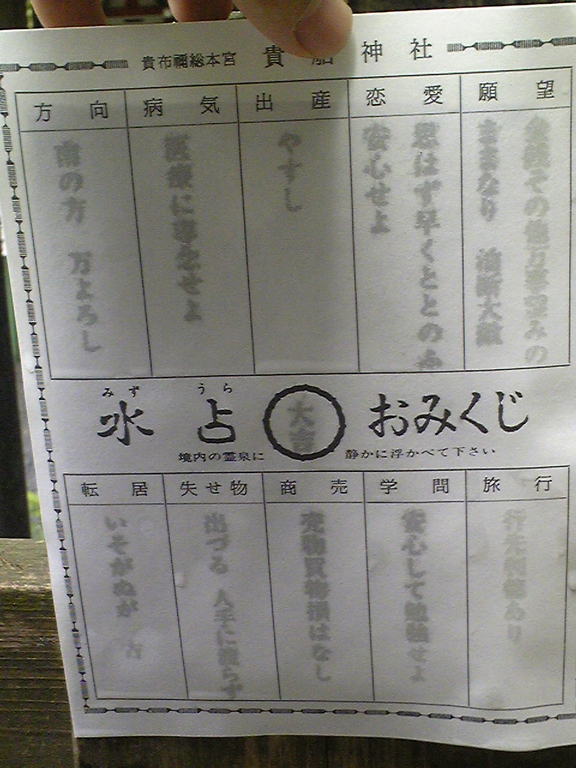 貴布禰総本宮 貴船神社
願望
金談その他万事望みの
ままなり 油断大敵
恋愛
思はず早くととのふ
安心せよ
出産
やすし
病気
医療に専念せよ
方向
南の方 万よろし
水占おみくじ
みず うら
大吉
境内の霊泉に
静かに浮かべて下さい
旅行
行先利徳あり
学問
安心して勉強せよ
商売
売物買物損はなし
失せ物
出づる 人手に渡らず
転居
いそがぬが 吉